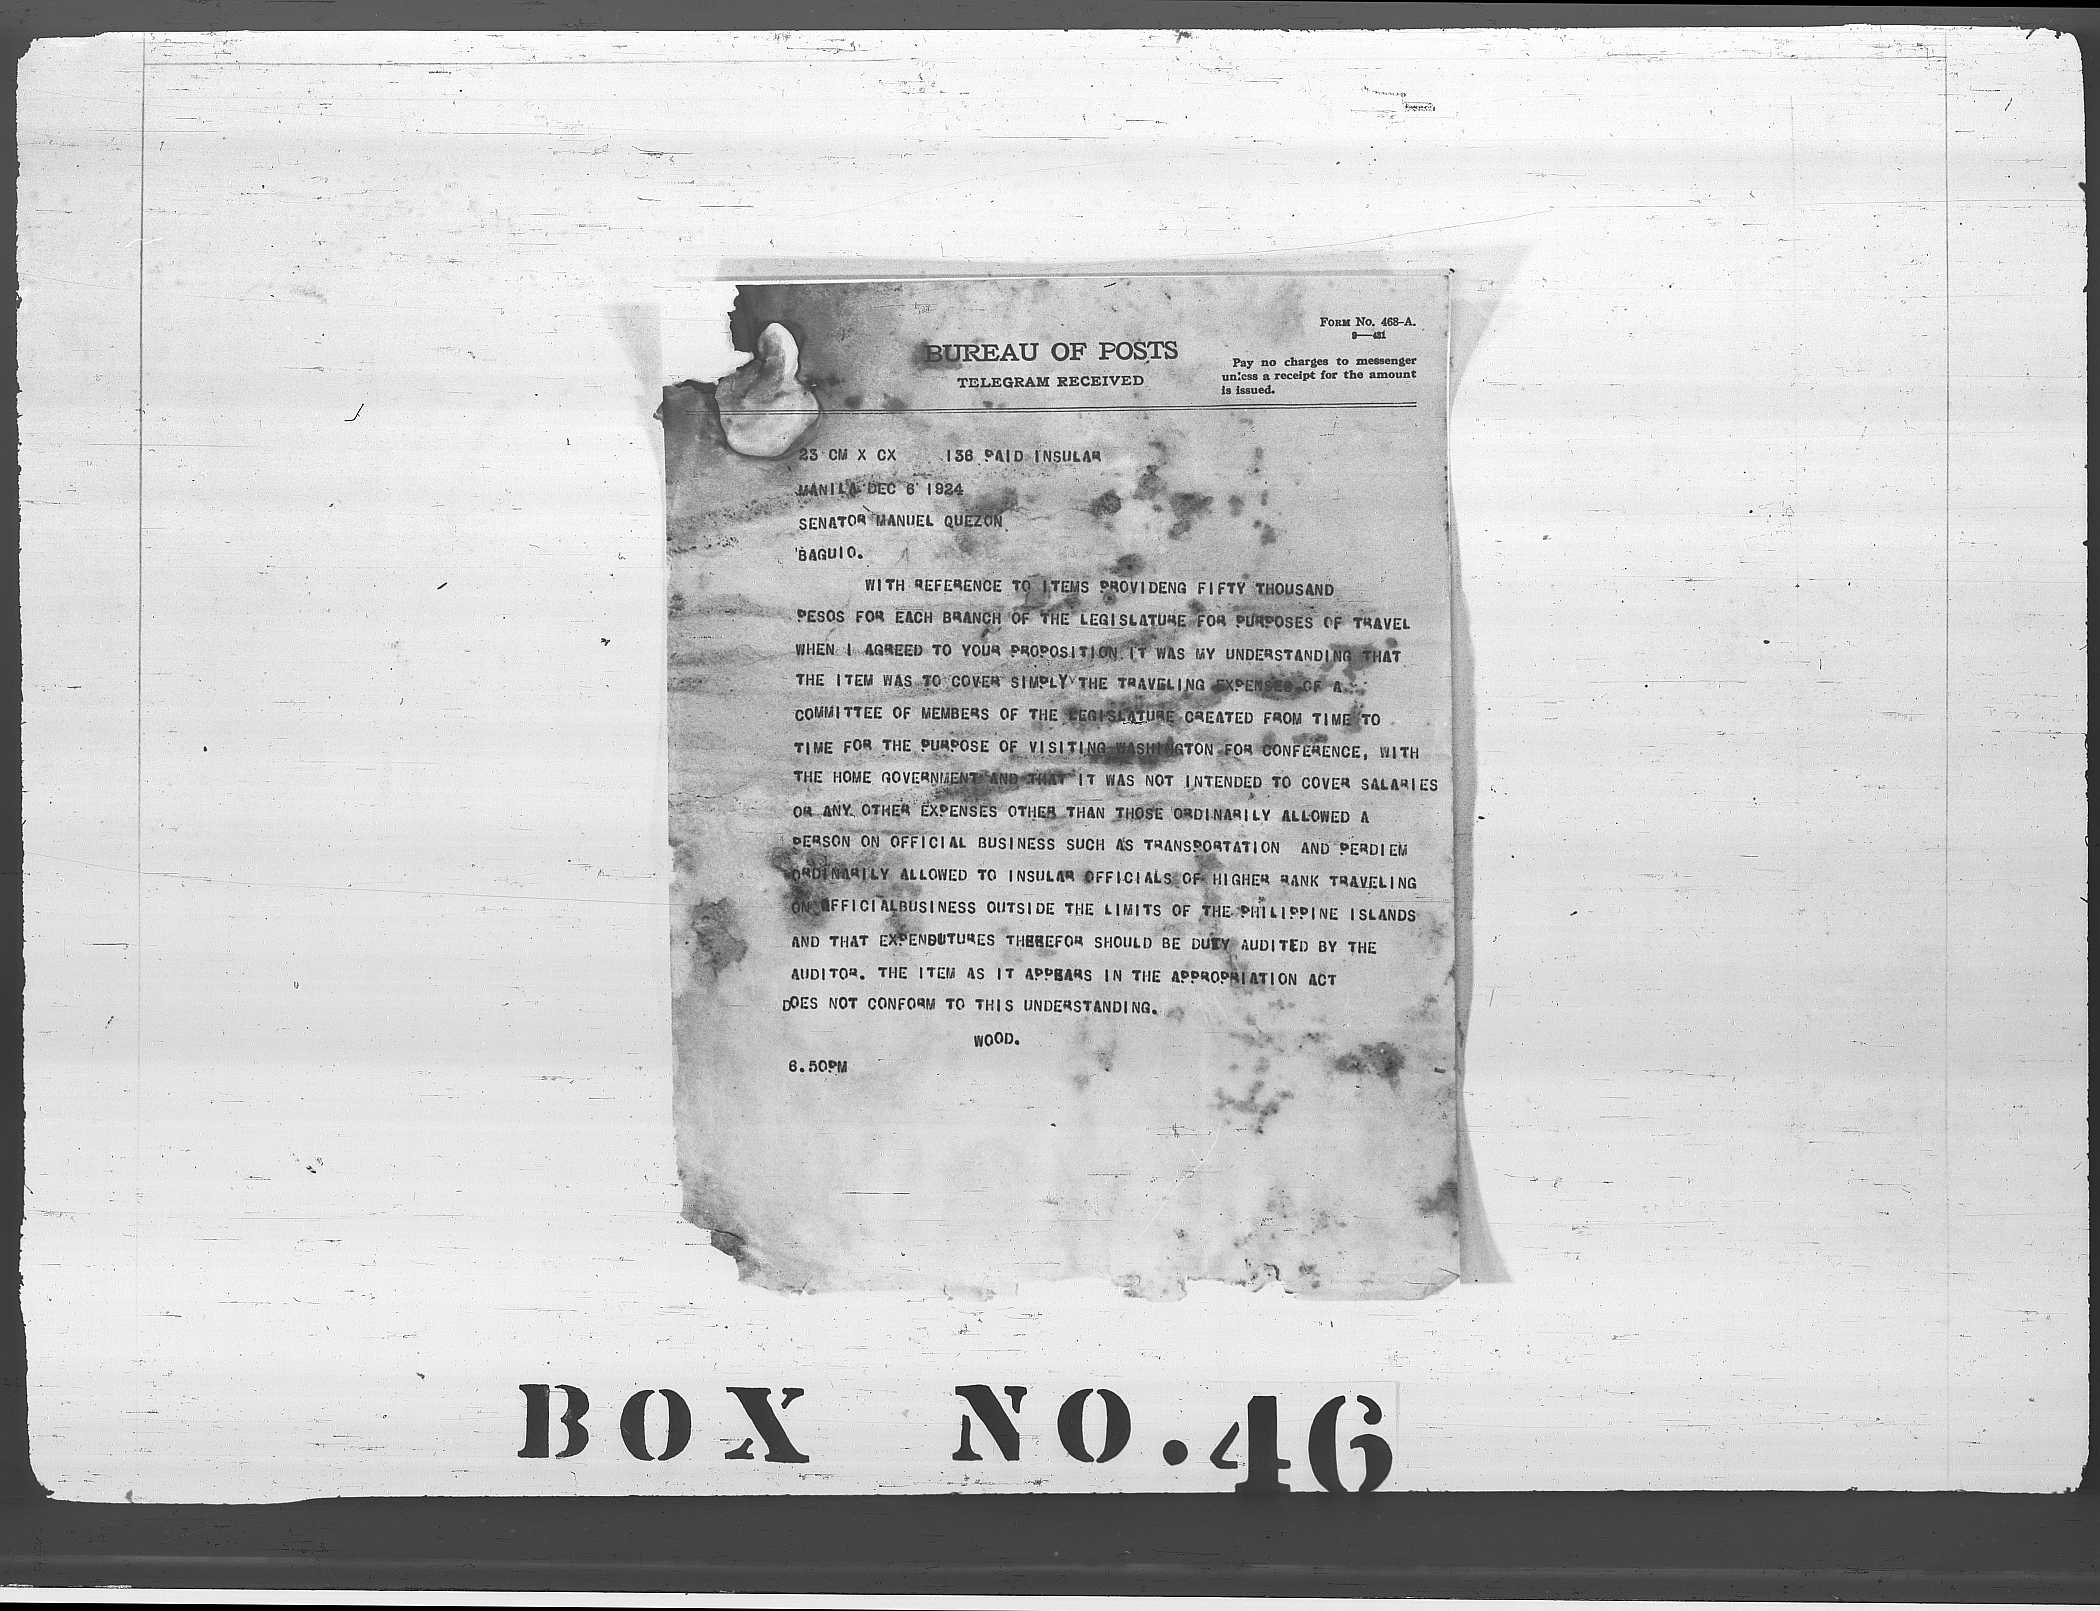 FORM NO. 468-A.
9—431
BUREAU OF POSTS
TELEGRAM RECEIVED
Pay no charges to messenger
unless a receipt for the amount
is issued.
23 CM X CX 136 PAID INSULAR
MANILA DEC 6 1924
SENATOR MANUEL QUEZON
BAGUIO.
WITH REFERENCE TO ITEMS PROVIDENG FIFTY THOUSAND
PESOS FOR EACH BRANCH OF THE LEGISLATURE FOR PURPOSES OF TRAVEL
WHEN I AGREED TO YOUR PROPOSITION IT WAS MY UNDERSTANDING THAT
THE ITEM WAS TO COVER SIMPLY THE TRAVELING EXPENSES OF A
COMMITTEE OF MEMBERS OF THE LEGISLATURE CREATED FROM TIME TO
TIME FOR THE PURPOSE OF VISITING WASHINGTON FOR CONFERENCE, WITH
THE HOME GOVERNMENT AND THAT IT WAS NOT INTENDED TO COVER SALARIES
OR ANY OTHER EXPENSES OTHER THAN THOSE ORDINARILY ALLOWED A
PERSON ON OFFICIAL BUSINESS SUCH AS TRANSPORTATION AND PERDIEM
ORDINARILY ALLOWED TO INSULAR OFFICIALS OF HIGHER RANK TRAVELING
ON OFFICIALBUSINESS OUTSIDE THE LIMITS OF THE PHILIPPINE ISLANDS
AND THAT EXPENDUTURES THEREFOR SHOULD BE DULY AUDITED BY THE
AUDITOR. THE ITEM AS IT APPEARS IN THE APPROPRIATION ACT
DOES NOT CONFORM TO THIS UNDERSTANDING.
WOOD.
6.50PM
BOX NO.46